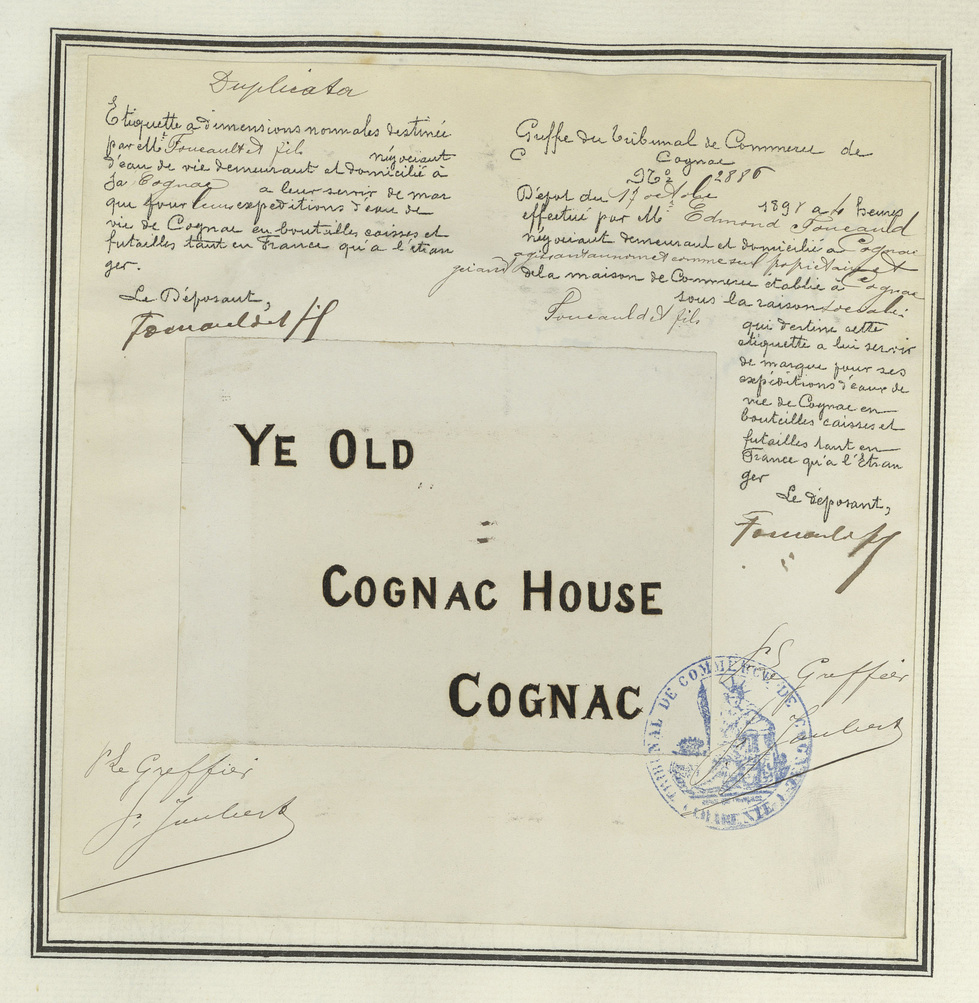 Duplicata
Etiquette a dimensions normales destinée
par MM. Foucauld et fils négociant
d'eau de vie demeurant et domicilié à
Cognac a leur servir de mar
que pour leurs expéditions d'eau de
vie de Cognac en bouteilles caisses et
futailles tant en France qu'a l'étran
ger.
Le Déposant,
Foucauld et fils
Greffe du Tribunal de Commerce de
Cognac
No 2886
Dépot du 17 octobre 1898 a 4 heures
effectué par M. Edmond Foucauld
négociant demeurant et domicilié a Cognac
agissant au nom et comme seul propriétaire et
gérant de la maison de Commerce établie à Cognac
sous la raison sociale:
Foucauld et fils
qui destine cette
etiquette a lui servir
de marque pour ses
expéditions d'eaux de
vie de Cognac en
bouteilles caisses et
futailles tant en
France qu'a l'Etran
ger
Le Déposant,
Foucauld et fils
YE OLD
COGNAC HOUSE
COGNAC
Greffier
Jaubert
TRIBUNAL DE COMMERCE DE COGNAC
CHARENTE
Greffier
Jaubert